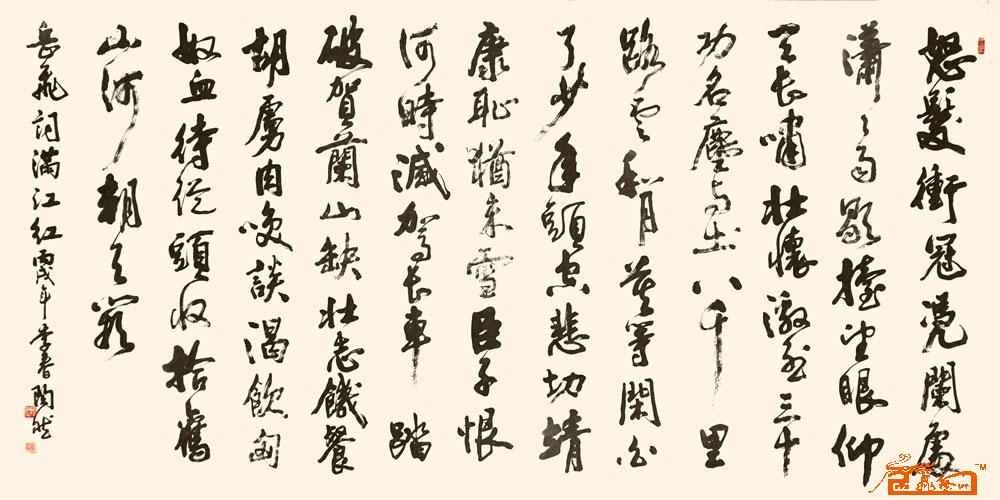 怒髮衝冠憑闌處
瀟瀟雨歇擡望眼仰
天長嘯壯懷激烈三十
功名塵与土八千里
路雲和月莫等閑白
了少年頭空悲切靖
康恥猶未雪臣子恨
何時滅駕長車踏
破賀蘭山缺壯志饑餐
胡虜肉笑談渴飲匈
奴血待從頭收拾舊
山河朝天闕
岳飛詞滿江紅 丙戌年李春陶然